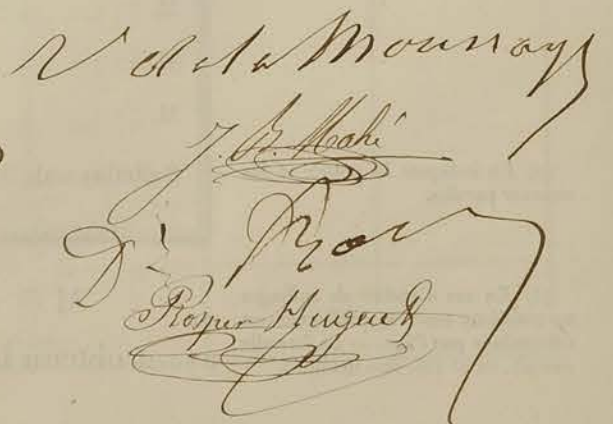 V de la Moussaye
J. B. Mahé
Dr
Prosper Huguet